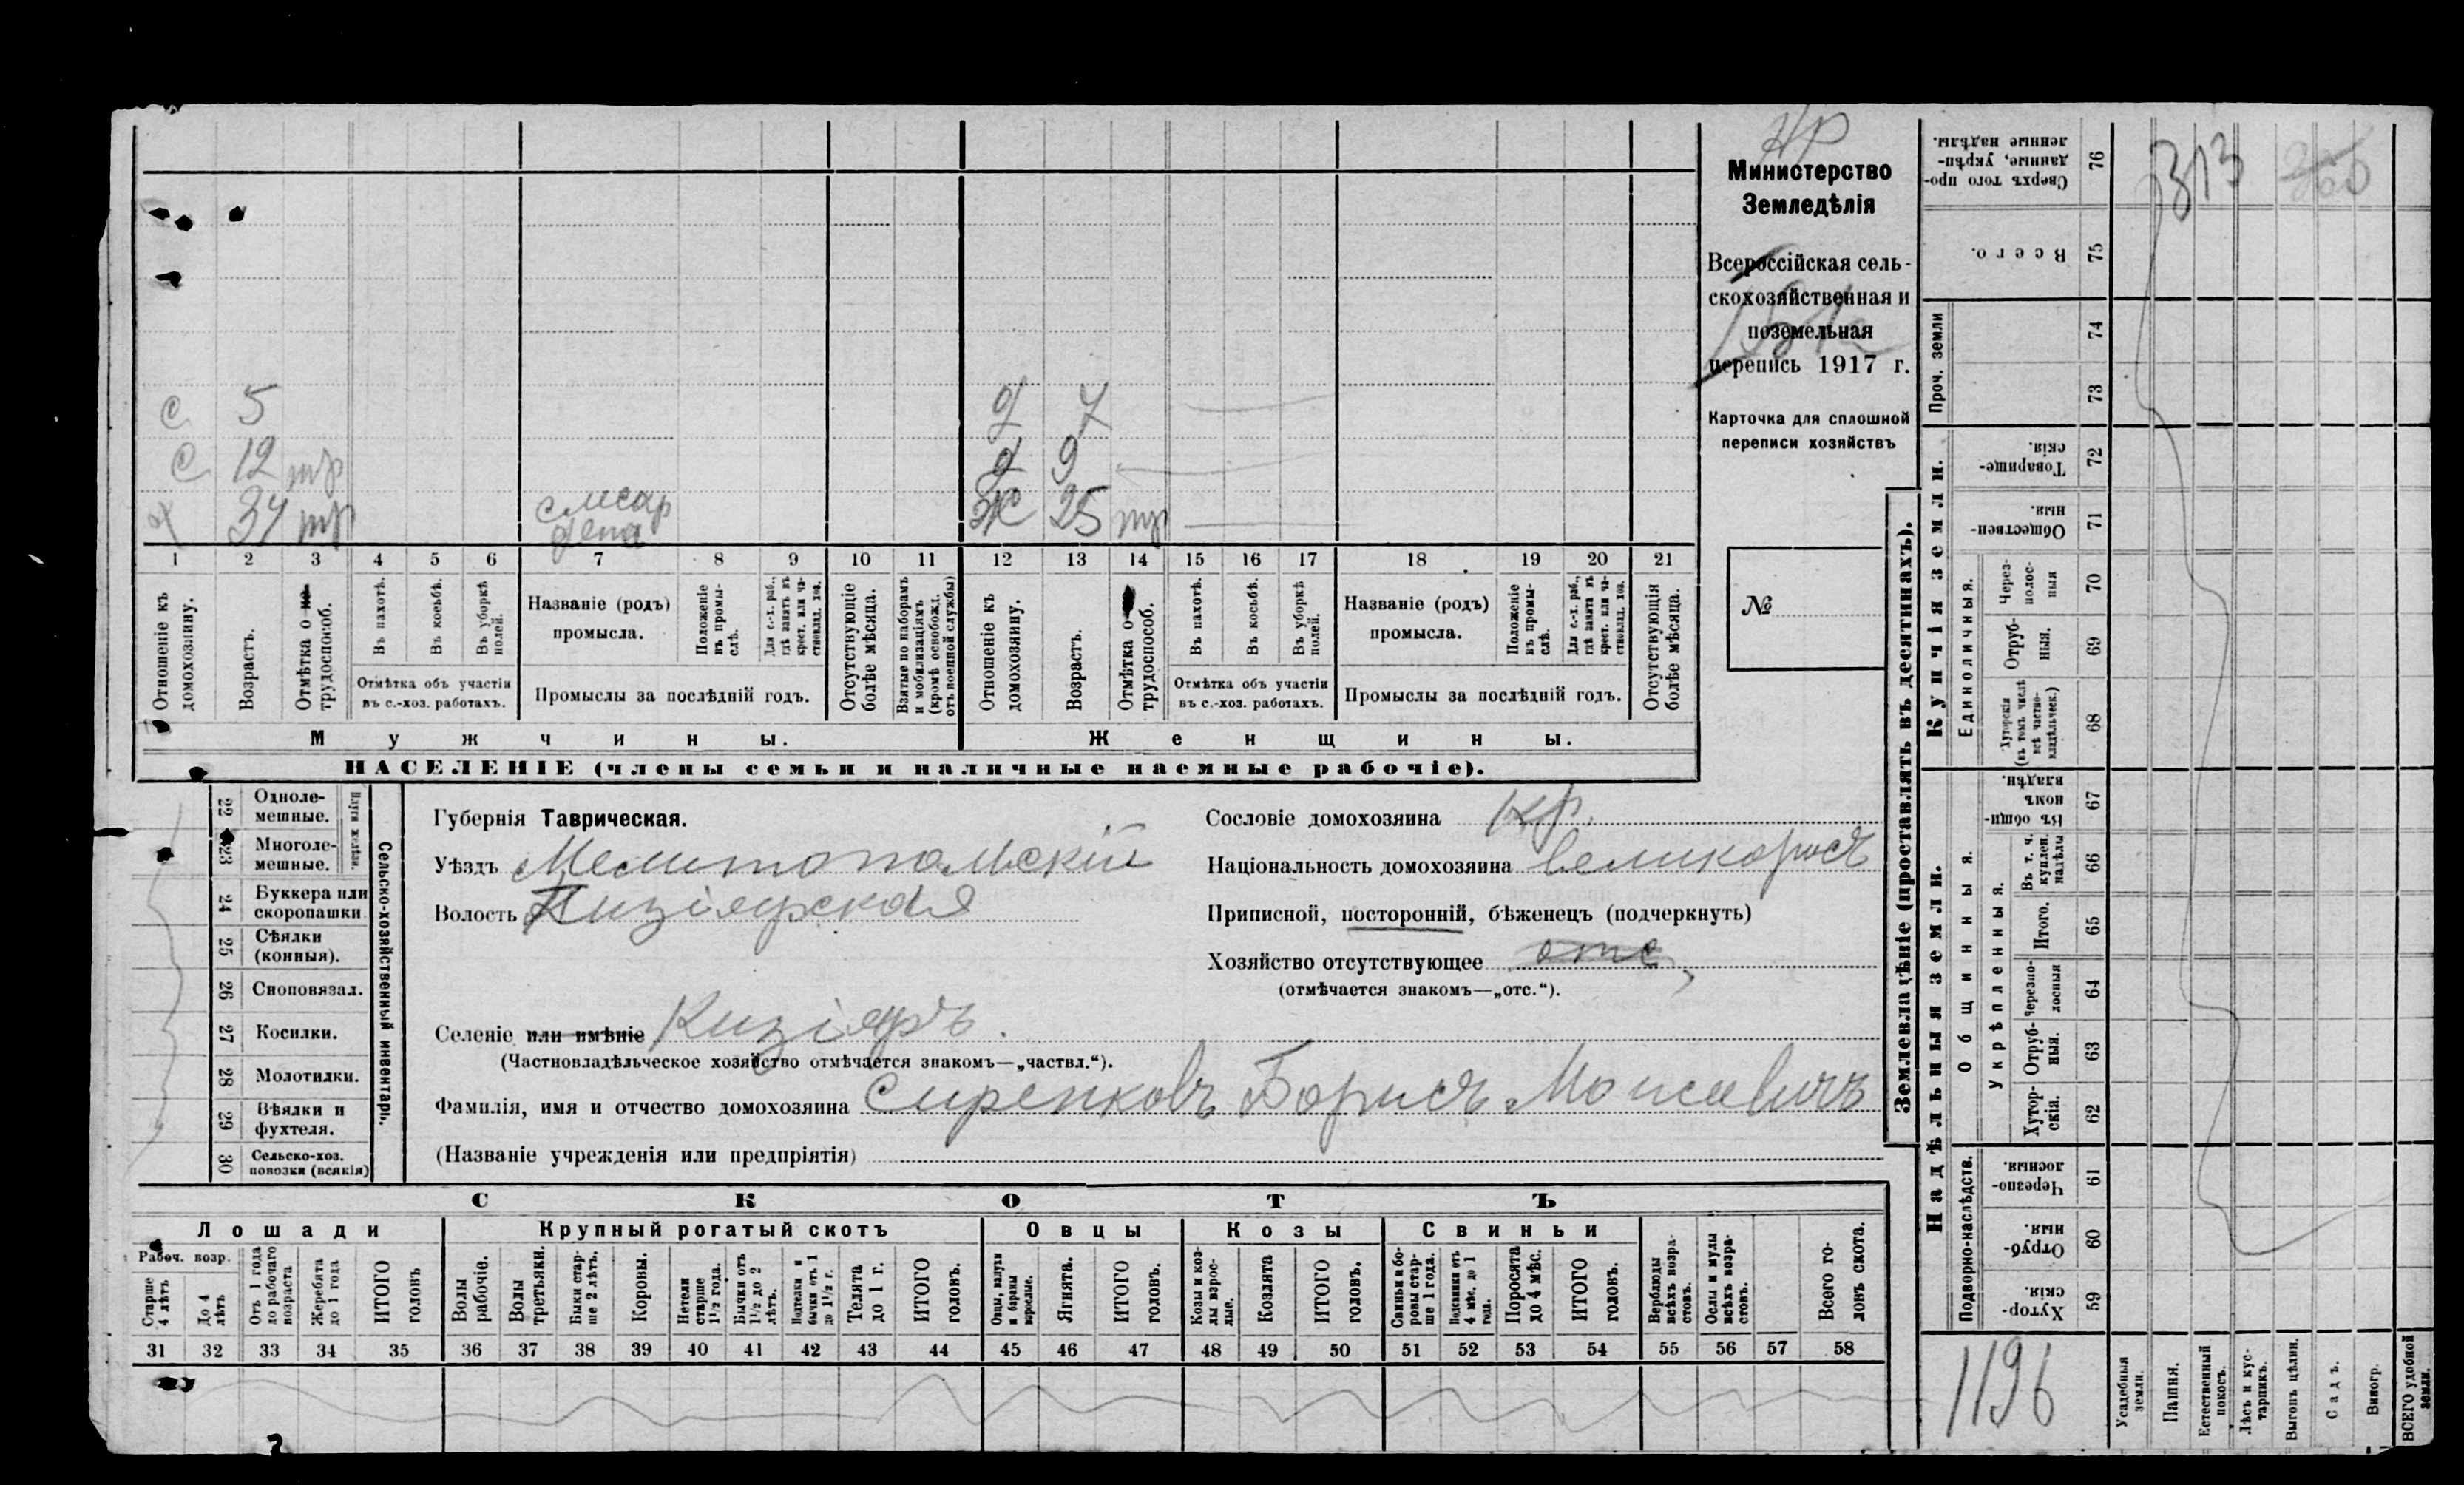 НР
Министерство
Земледѣлія
Всероссійская сель-
скохозяйственная и
поземельная
перепись 1917 г.
Карточка для сплошной
переписи хозяйствъ
№
с 5
с 12 тр
х 37 тр слесар
депо
д 7
д 9
ж 25 тр
1 2 3 4 5 6 7 8 9 10 11 12 13 14 15 16 17 18 19 20 21
Отношеніе къ домохозяину.
Возрастъ.
Отмѣтка о не-трудоспособ.
Въ пахотѣ.
Въ косьбѣ.
Въ уборкѣ полей.
Отмѣтка объ участіи
въ с.-хоз. работахъ.
Названіе (родъ)
промысла.
Положеніе въ промыслѣ.
Для с.-х. раб., гдѣ занятъ въ крест. или частновлад. хоз.
Промыслы за послѣдній годъ.
Отсутствующіе болѣе мѣсяца.
Взятые по наборамъ и мобилизаціямъ (кромѣ освобожд. отъ военной службы)
Отношеніе къ домохозяину.
Возрастъ.
Отмѣтка о трудоспособ.
Въ пахотѣ.
Въ косьбѣ.
Въ уборкѣ полей.
Отмѣтка объ участіи
въ с.-хоз. работахъ.
Названіе (родъ)
промысла.
Положеніе въ промыслѣ.
Для с.-х. раб., гдѣ занята въ крест. или частновлад. хоз.
Промыслы за послѣдній годъ.
Отсутствующія болѣе мѣсяца.
Мужчины. Женщины.
НАСЕЛЕНІЕ (члены семьи и наличные наемные рабочіе).
22 Одноле-
мешные.
23 Многоле-
мешные.
24 Буккера или
скоропашки
25 Сѣялки
(конныя).
26 Сноповязал.
27 Косилки.
28 Молотилки.
29 Вѣялки и
фухтеля.
30 Сельско-хоз.
повозки (всякія)
Сельско-хозяйственный инвентарь.
Губернія Таврическая.
Уѣздъ Мелитопольскій
Волость Кизіярская
Сословіе домохозяина кр.
Національность домохозяина великороссъ
Приписной, посторонній, бѣженецъ (подчеркнуть)
Хозяйство отсутствующее отс
(отмѣчается знакомъ—„отс.“).
Селеніе или имѣніе Кизіяръ.
(Частновладѣльческое хозяйство отмѣчается знакомъ—„частвл.“).
Фамилія, имя и отчество домохозяина Сиренковъ Борисъ Моисевичъ
(Названіе учрежденія или предпріятія)
СКОТЪ
Лошади Крупный рогатый скотъ Овцы Козы Свиньи
Рабоч. возр.
Старше 4 лѣтъ
До 4 лѣтъ
Отъ 1 года до рабочаго возраста
Жеребята до 1 года
ИТОГО головъ
Волы рабочіе.
Волы третьяки.
Быки старше 2 лѣтъ.
Коровы.
Нетели старше 1½ года.
Бычки отъ 1½ до 2 лѣтъ.
Подтелки и бычки отъ 1 до 1½ г.
Телята до 1 г.
ИТОГО головъ.
Овцы, валухи и бараны взрослые.
Ягнята.
ИТОГО головъ.
Козы и козлы взрослые.
Козлята
ИТОГО головъ.
Свиньи и боровы старше 1 года.
Подсвинки отъ 4 мѣс. до 1 года.
Поросята до 4 мѣс.
ИТОГО головъ.
Верблюды всѣхъ возрастовъ.
Ослы и мулы всѣхъ возрастовъ.
Всего головъ скота.
31 32 33 34 35 36 37 38 39 40 41 42 43 44 45 46 47 48 49 50 51 52 53 54 55 56 57 58
Землевладѣніе (проставлять въ десятинахъ).
Купчія земли.
Надѣльныя земли.
Сверхъ того проданные, укрѣпленные надѣлы. 76
Всего. 75
Проч. земли 74
73
Товарищескія. 72
Общественныя. 71
Единоличныя.
Черезполосныя 70
Отрубныя. 69
Хуторскія (въ томъ числѣ всѣ частновладѣльческ.) 68
Общинныя.
Въ общиномъ владѣн. 67
Укрѣпленныя.
Въ т. ч. куплен. надѣлы 66
Итого. 65
Черезполосныя 64
Отрубныя. 63
Хуторскія. 62
Подворно-наслѣдств.
Черезполосныя. 61
Отрубныя. 60
Хуторскія. 59
313
1196
Усадебная земли.
Пашня.
Естественный покосъ.
Лѣсъ и кустарникъ.
Выгонъ цѣлин.
Садъ.
Виногр.
ВСЕГО удобной земли.